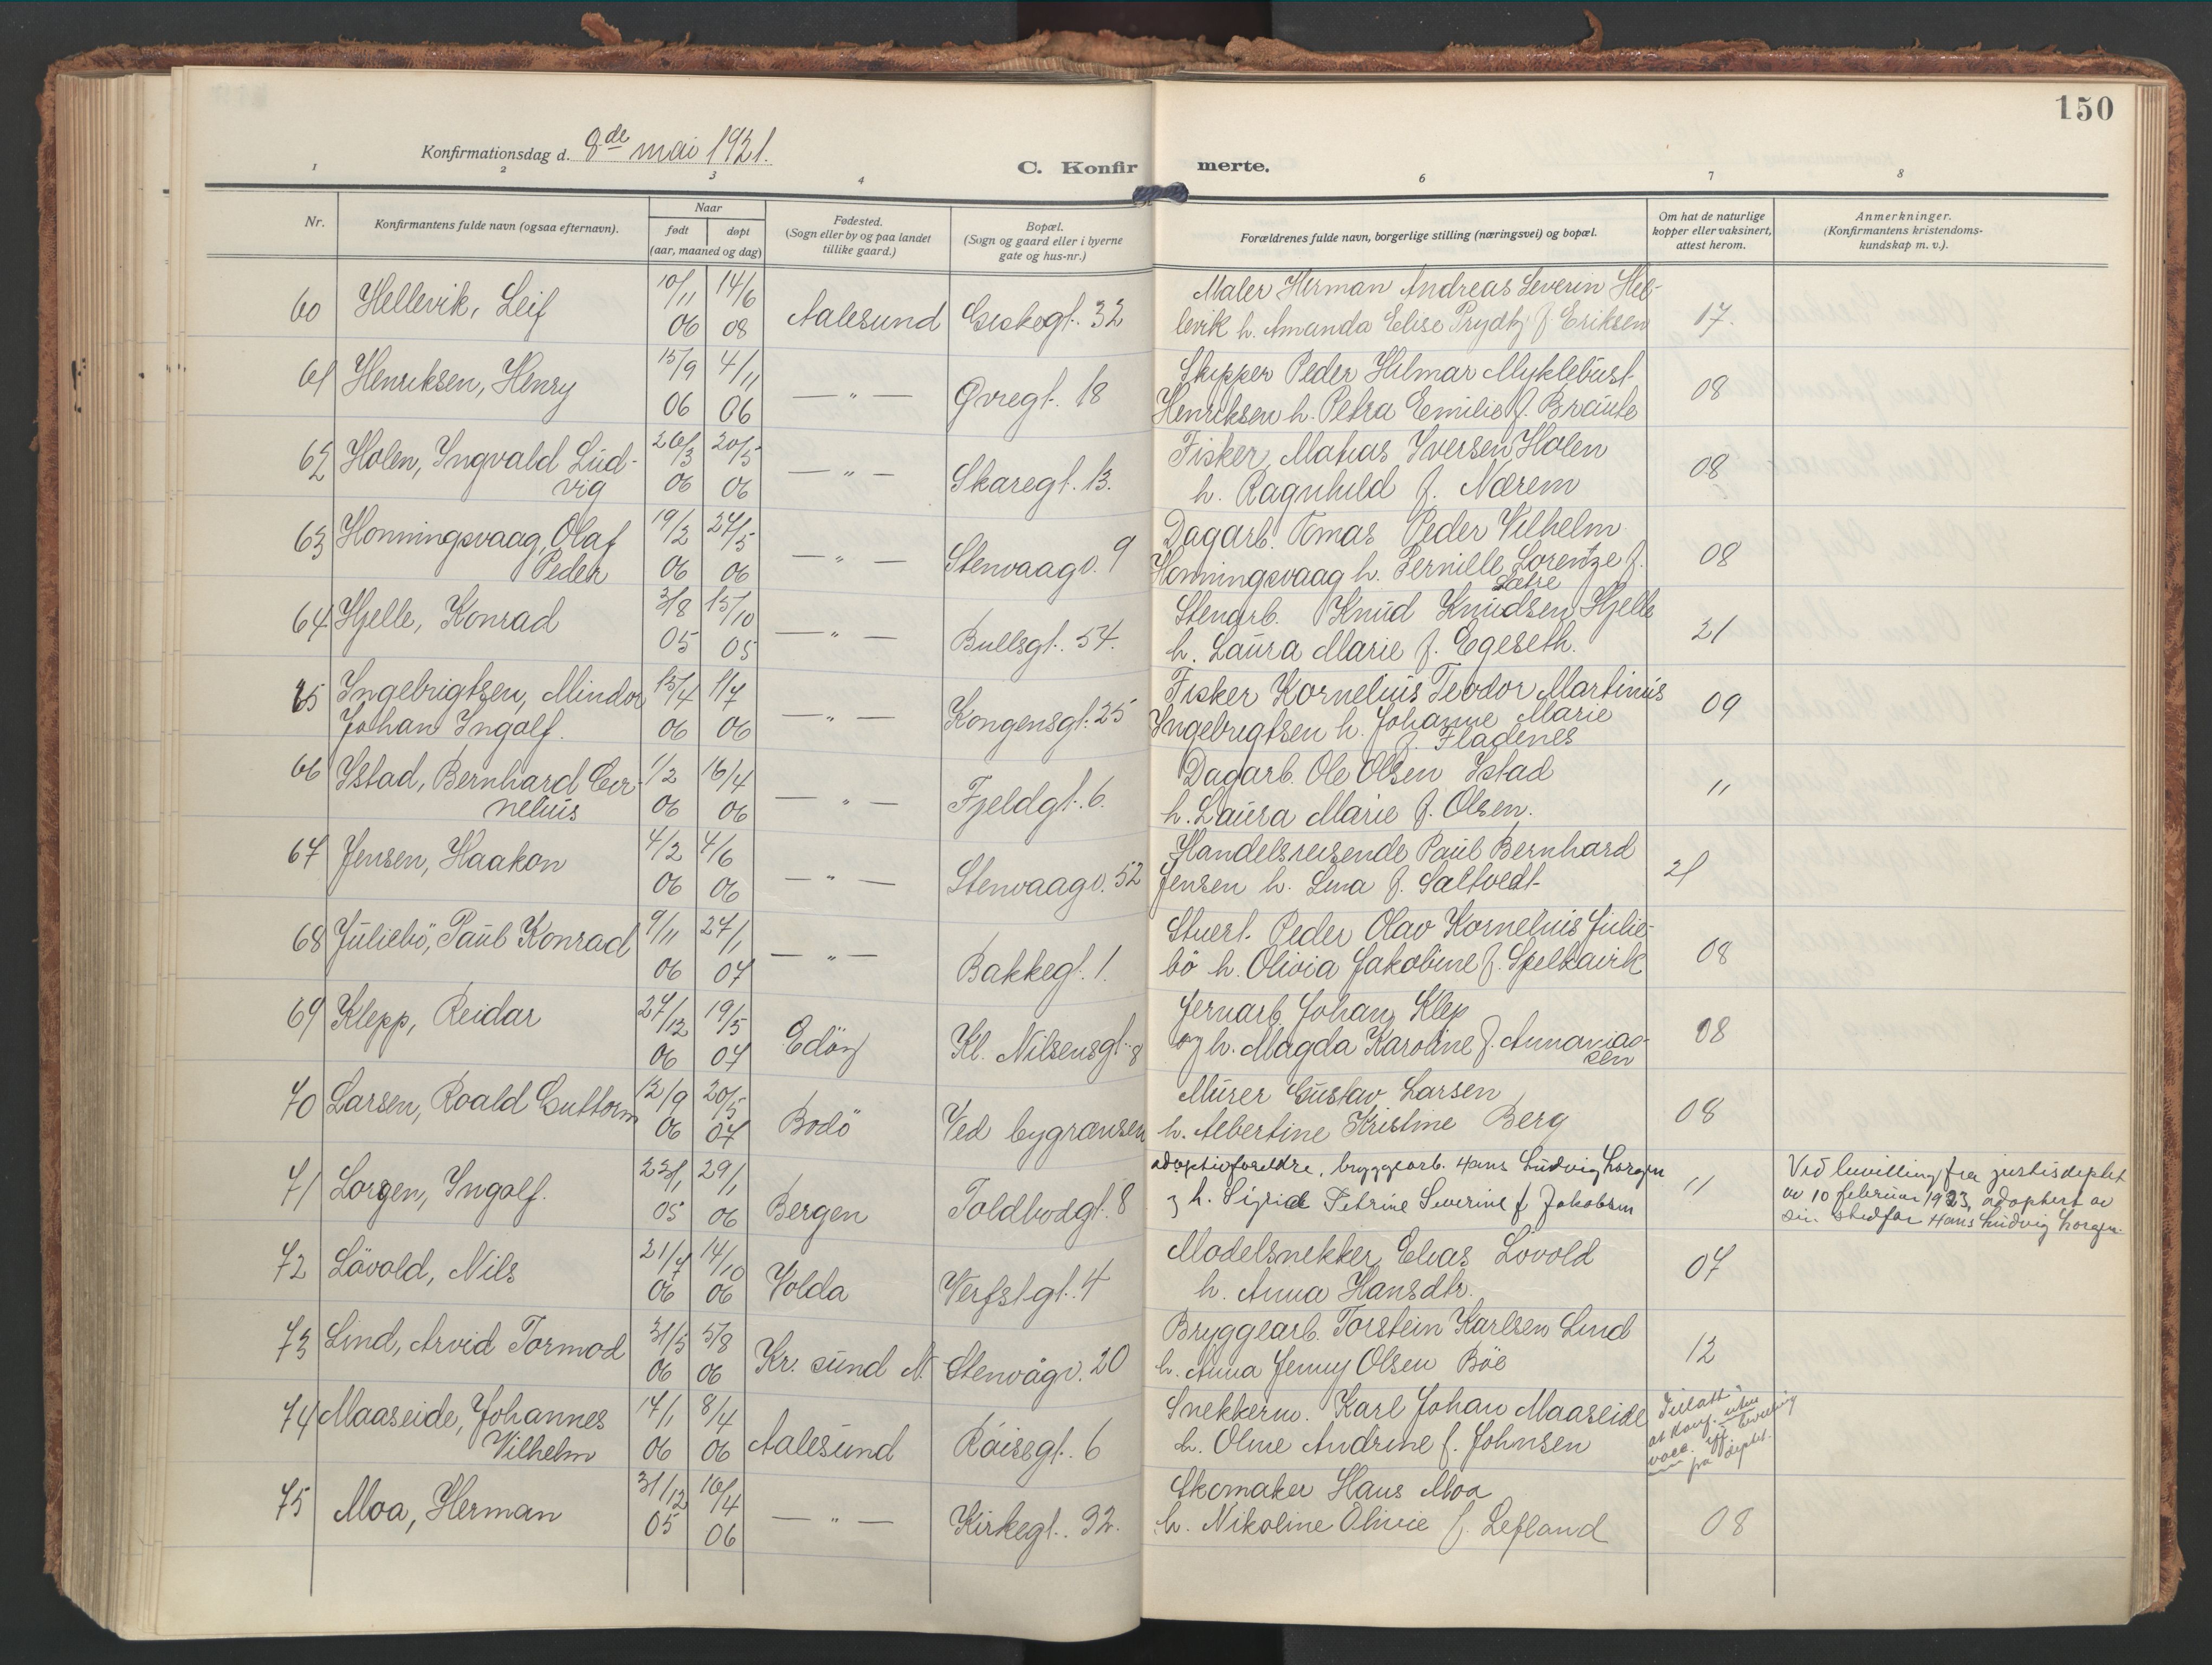 150
Konfirmationsdag d. 8de mai 1921.
C. Konfirmerte.
1 2 3 4 6 7 8
Nr.
Konfirmantens fulde navn (ogsaa efternavn).
Naar
født døpt
(aar, maaned og dag)
Fødested.
(Sogn eller by og paa landet
tillike gaard.)
Bopæl.
(Sogn og gaard eller i byerne
gate og hus-nr.)
Forældrenes fulde navn, borgerlige stilling (næringsvei) og bopæl.
Om hat de naturlige
kopper eller vaksinert,
attest herom.
Anmerkninger.
(Konfirmantens kristendoms-
kundskap m. v.).
60 Hellevik, Leif 10/11 06 14/6 08 Aalesund Giskegt. 32 Maler Herman Andreas Severin Hel-
levik h. Amanda Elise Prydtz f Eriksen 17.
61 Henriksen, Henry 15/9 06 4/11 06 — " — Øvregt. 18 Skipper Peder Hilmar Myklebust
Henriksen h. Petra Emilie f. Braute 08
62 Holen, Ingvald Lud-
vig 26/3 06 20/5 06 — " — Skaregt. 13. Fisker Matias Iversen Holen
h. Ragnhild f. Nærem 08
63 Honningsvaag, Olaf
Peder 19/2 06 27/5 06 — " — Stenvaagv. 9 Dagarb. Tomas Peder Vilhelm
Honningsvaag h. Pernille Lorentze f.
Sætre 08
64 Hjelle, Konrad 3/8 05 15/10 05 — " — Bullsgt. 54. Stenarb. Knud Knudsen Hjelle
h. Laura Marie f. Egeseth. 21
65 Ingebrigtsen, Mindor
Johan Ingolf. 15/4 06 1/7 06 — " — Kongensgt. 25 Fisker Kornelius Teodor Martinus
Ingebrigtsen h. Johanne Marie
f. Fladenes 09
66 Istad, Bernhard Cor-
nelius 1/2 06 16/4 06 — " — Fjeldgt. 6. Dagarb. Ole Olsen Istad
h. Laura Marie f. Olsen. 11
67 Jensen, Haakon 4/2 06 4/6 06 — " — Stenvaagv. 52 Handelsreisende Paul Bernhard
Jensen h. Lina f. Saltvedt 21
68 Juliebö, Paul Konrad 9/11 06 27/1 07 — " — Bakkegt. 1. Stuert. Peder Olav Kornelius Julie-
bö h. Olivia Jakobine f. Spelkavik 08
69 Klepp, Reidar 27/12 06 19/5 07 Edöy Kl. Nilsensgt. 8 Jernarb. Johan Klep
og h. Magda Karoline f. Annanias-
sen 08
70 Larsen, Roald Guttorm 12/9 06 20/5 07 Bodö Ved bygrænsen Murer Gustav Larsen
h. Albertine Kristine Berg 08
71 Lorgen, Ingolf. 23/1 05 29/1 06 Bergen Toldbodgt. 8 adoptivforeldre, bryggearb. Hans Ludvig Lorgen
og h. Sigrid Petrine Severine f Jakobsen 11 Ved bevilling fra justisdeptet
av 10 februar 1923, adoptert av
sin stedfar Hans Ludvig Lorgen.
72 Lövold, Nils 21/7 06 14/10 06 Volda Verfstgt. 4 Modelsnekker Elias Lövold
h. Anna Hansdtr. 07
73 Lind, Arvid Tormod 31/5 06 5/8 06 Kr. sund N. Stenvågv. 20 Bryggearb. Torstein Karlsen Lind
h. Anna Jenny Olsen Böe 12
74 Maaseide, Johannes
Vilhelm 14/1 06 8/4 06 Aalesund Röisegt. 6 Snekkerm. Karl Johan Maaseide
h. Oline Andrine f. Johnsen Tillatt
at konf. uten
vacc. iff. bevilling
fra deptet.
75 Moa, Herman 31/12 05 16/4 06 — " — Kirkegt. 32. Skomaker Hans Moa
h. Nikoline Olivie f. Lefland 08